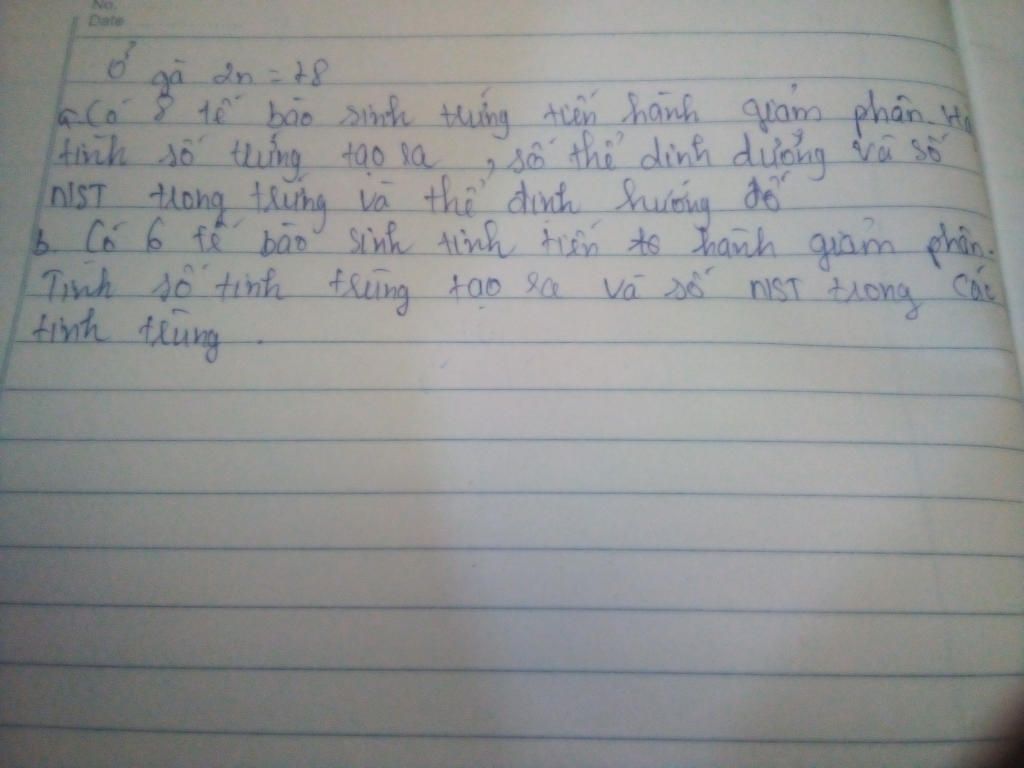 No.
Date
Ở gà 2n = 78
a. Có 8 tế bào sinh trứng tiến hành giảm phân.
tính số trứng tạo ra, số thể dinh dưỡng và số
NST trong trứng và thể định hướng đó
b. Có 6 tế bào sinh tinh tiến to hành giảm phân.
Tính số tinh trùng tạo ra và số NST trong các
tinh trùng.